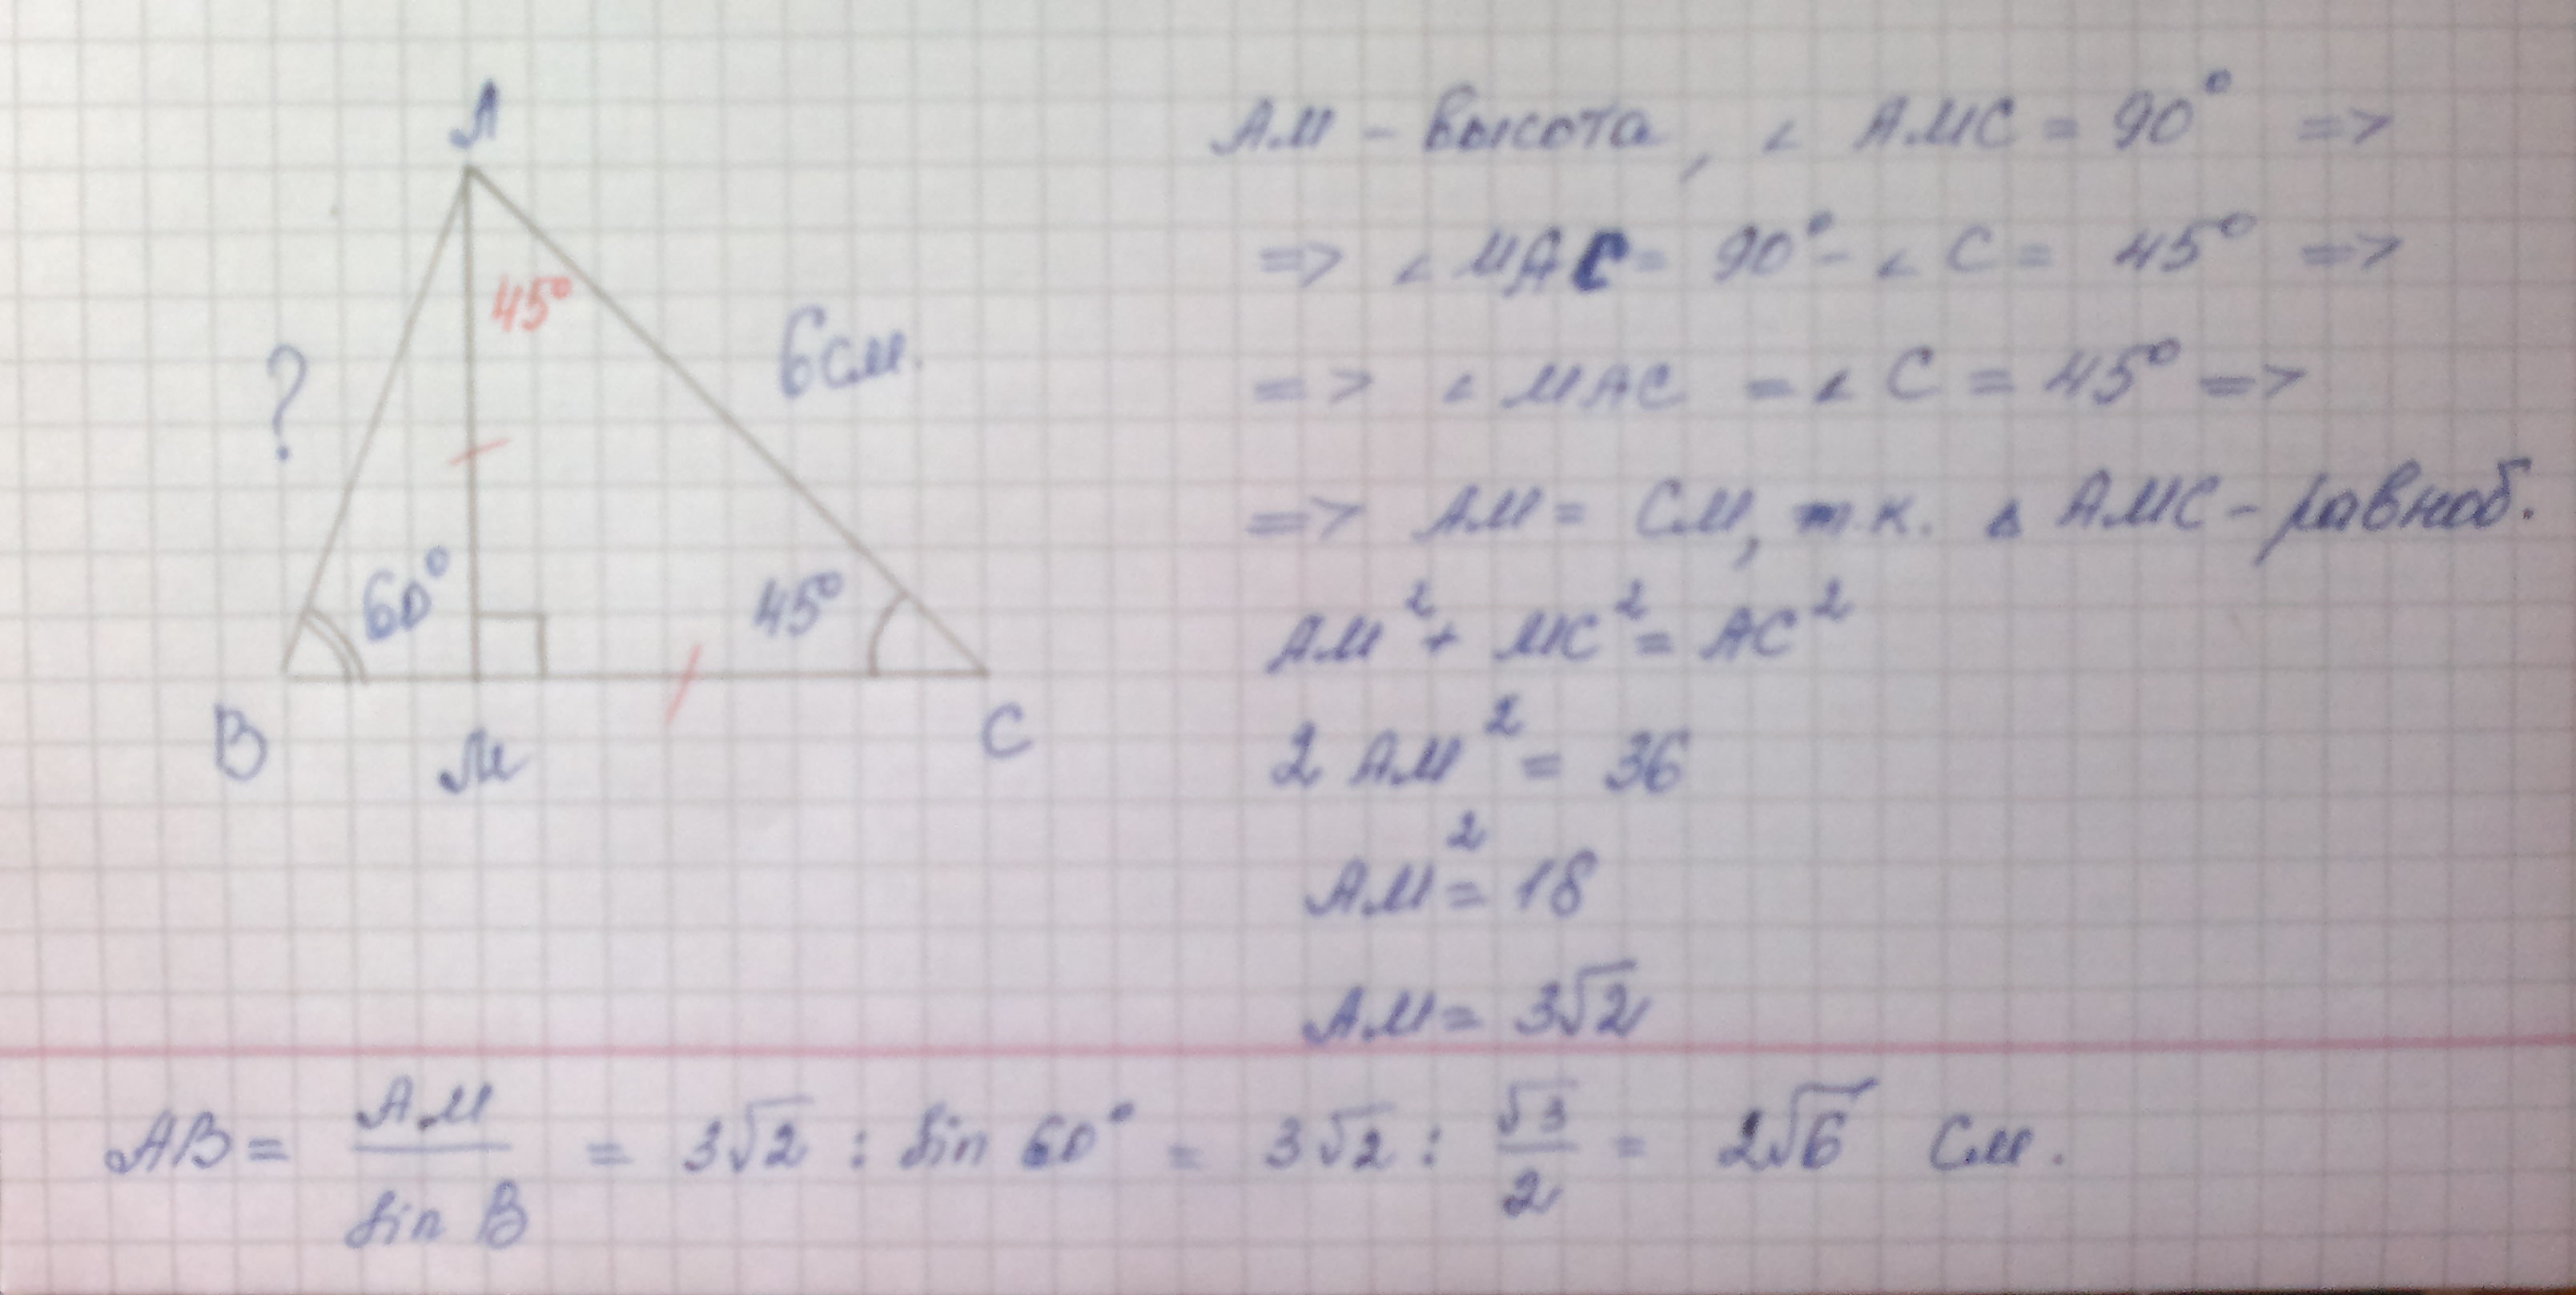 A
45°
?
6 см.
60°
45°
B
M
C
AM - высота, ∠ AMC = 90° =>
=> ∠ MAC = 90° - ∠ C = 45° =>
=> ∠ MAC = ∠ C = 45° =>
=> AM = CM, т.к. Δ AMC - равноб.
AM² + MC² = AC²
2 AM² = 36
AM² = 18
AM = 3√2
AB = AM / sin B = 3√2 : sin 60° = 3√2 : √3/2 = 2√6 см.